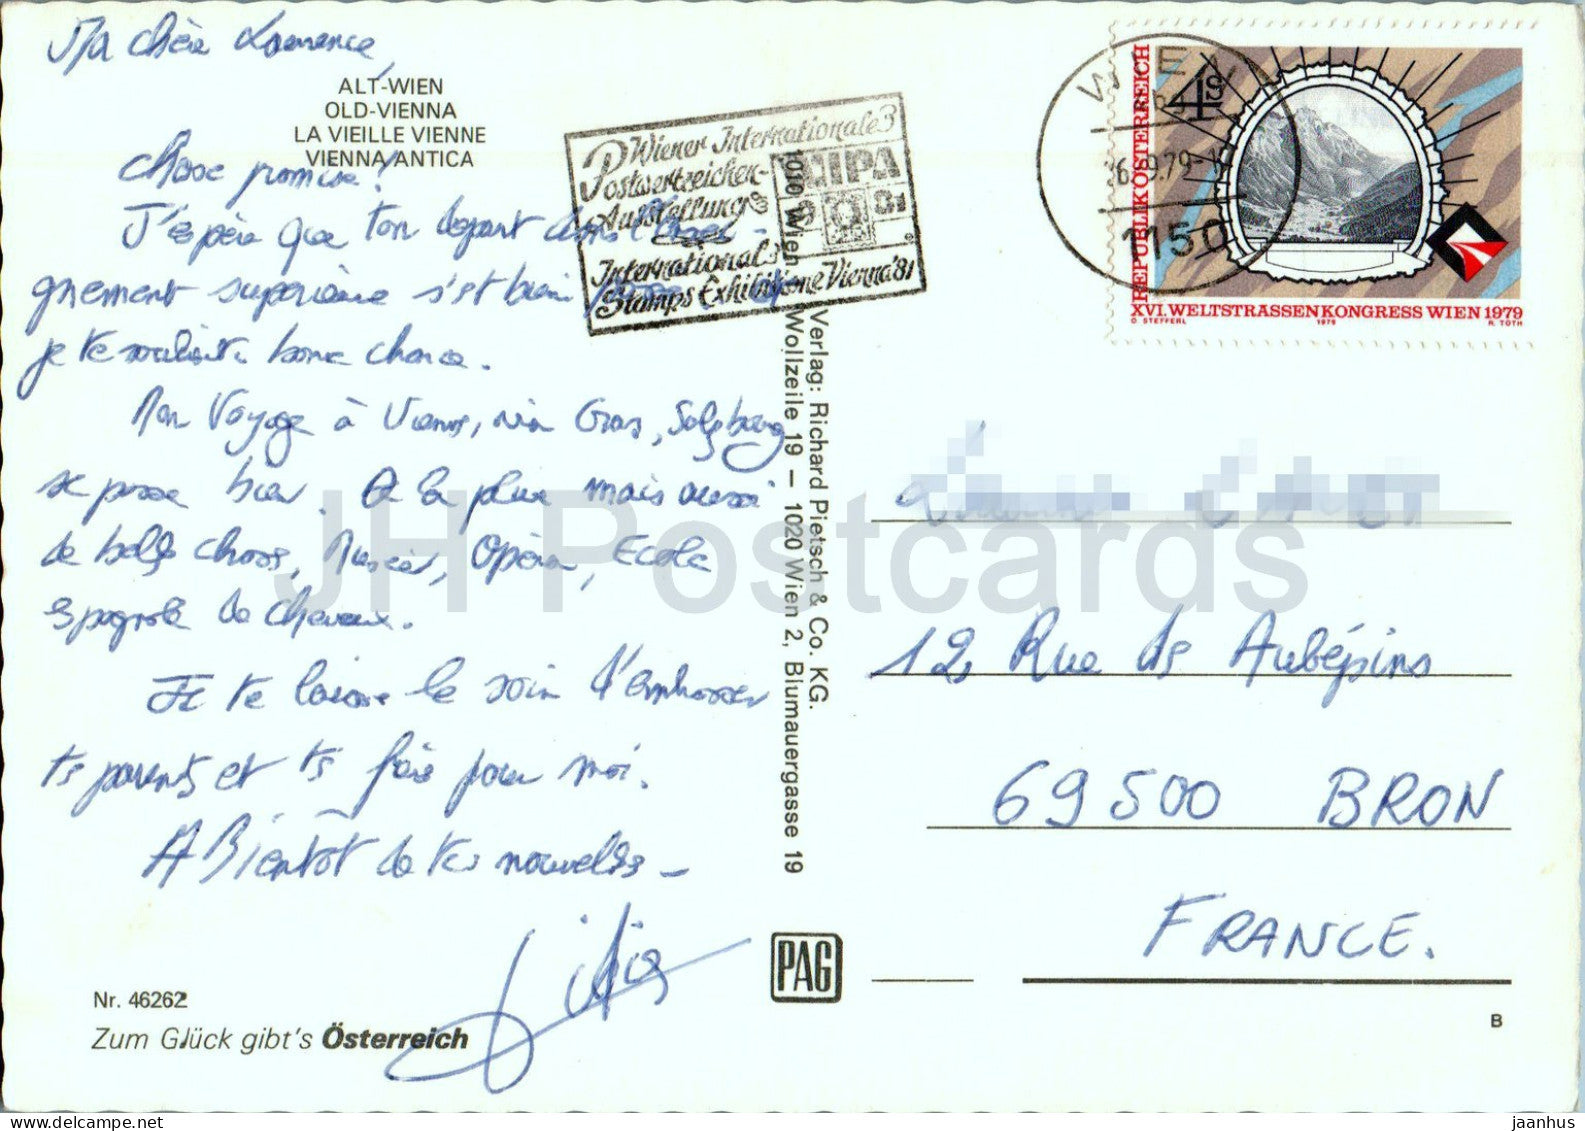 Ma chère Laurence,
ALT-WIEN
OLD-VIENNA
LA VIEILLE VIENNE
VIENNA ANTICA
Chose promise!
J'espère que ton départ dans l'ensei-
gnement supérieur s'est bien
je te souhaite bonne chance.
Mon Voyage à Vienne, via Graz, Salzburg
se passe bien. De la pluie mais aussi
de belles choses, Musées, Opéra, Ecole
espagnole de chevaux.
Je te laisse le soin d'embrasser
tes parents et tes frères pour moi.
A Bientôt de tes nouvelles -
Nr. 46262
Zum Glück gibt's Österreich
Wiener Internationale
Postwertzeichen-
Ausstellung
International
Stamps Exhibitione Vienna'81
WIPA
1981
Verlag: Richard Pietsch & Co. KG.
1010 Wien Wollzeile 19 – 1020 Wien 2, Blumauergasse 19
PAG
WIEN
1150
REPUBLIK ÖSTERREICH
4 S
XVI. WELTSTRASSENKONGRESS WIEN 1979
O. STEFFERL 1979 R. TOTH
12 Rue des Aubépins
69500 BRON
FRANCE.
B
JH Postcards
jaanhus